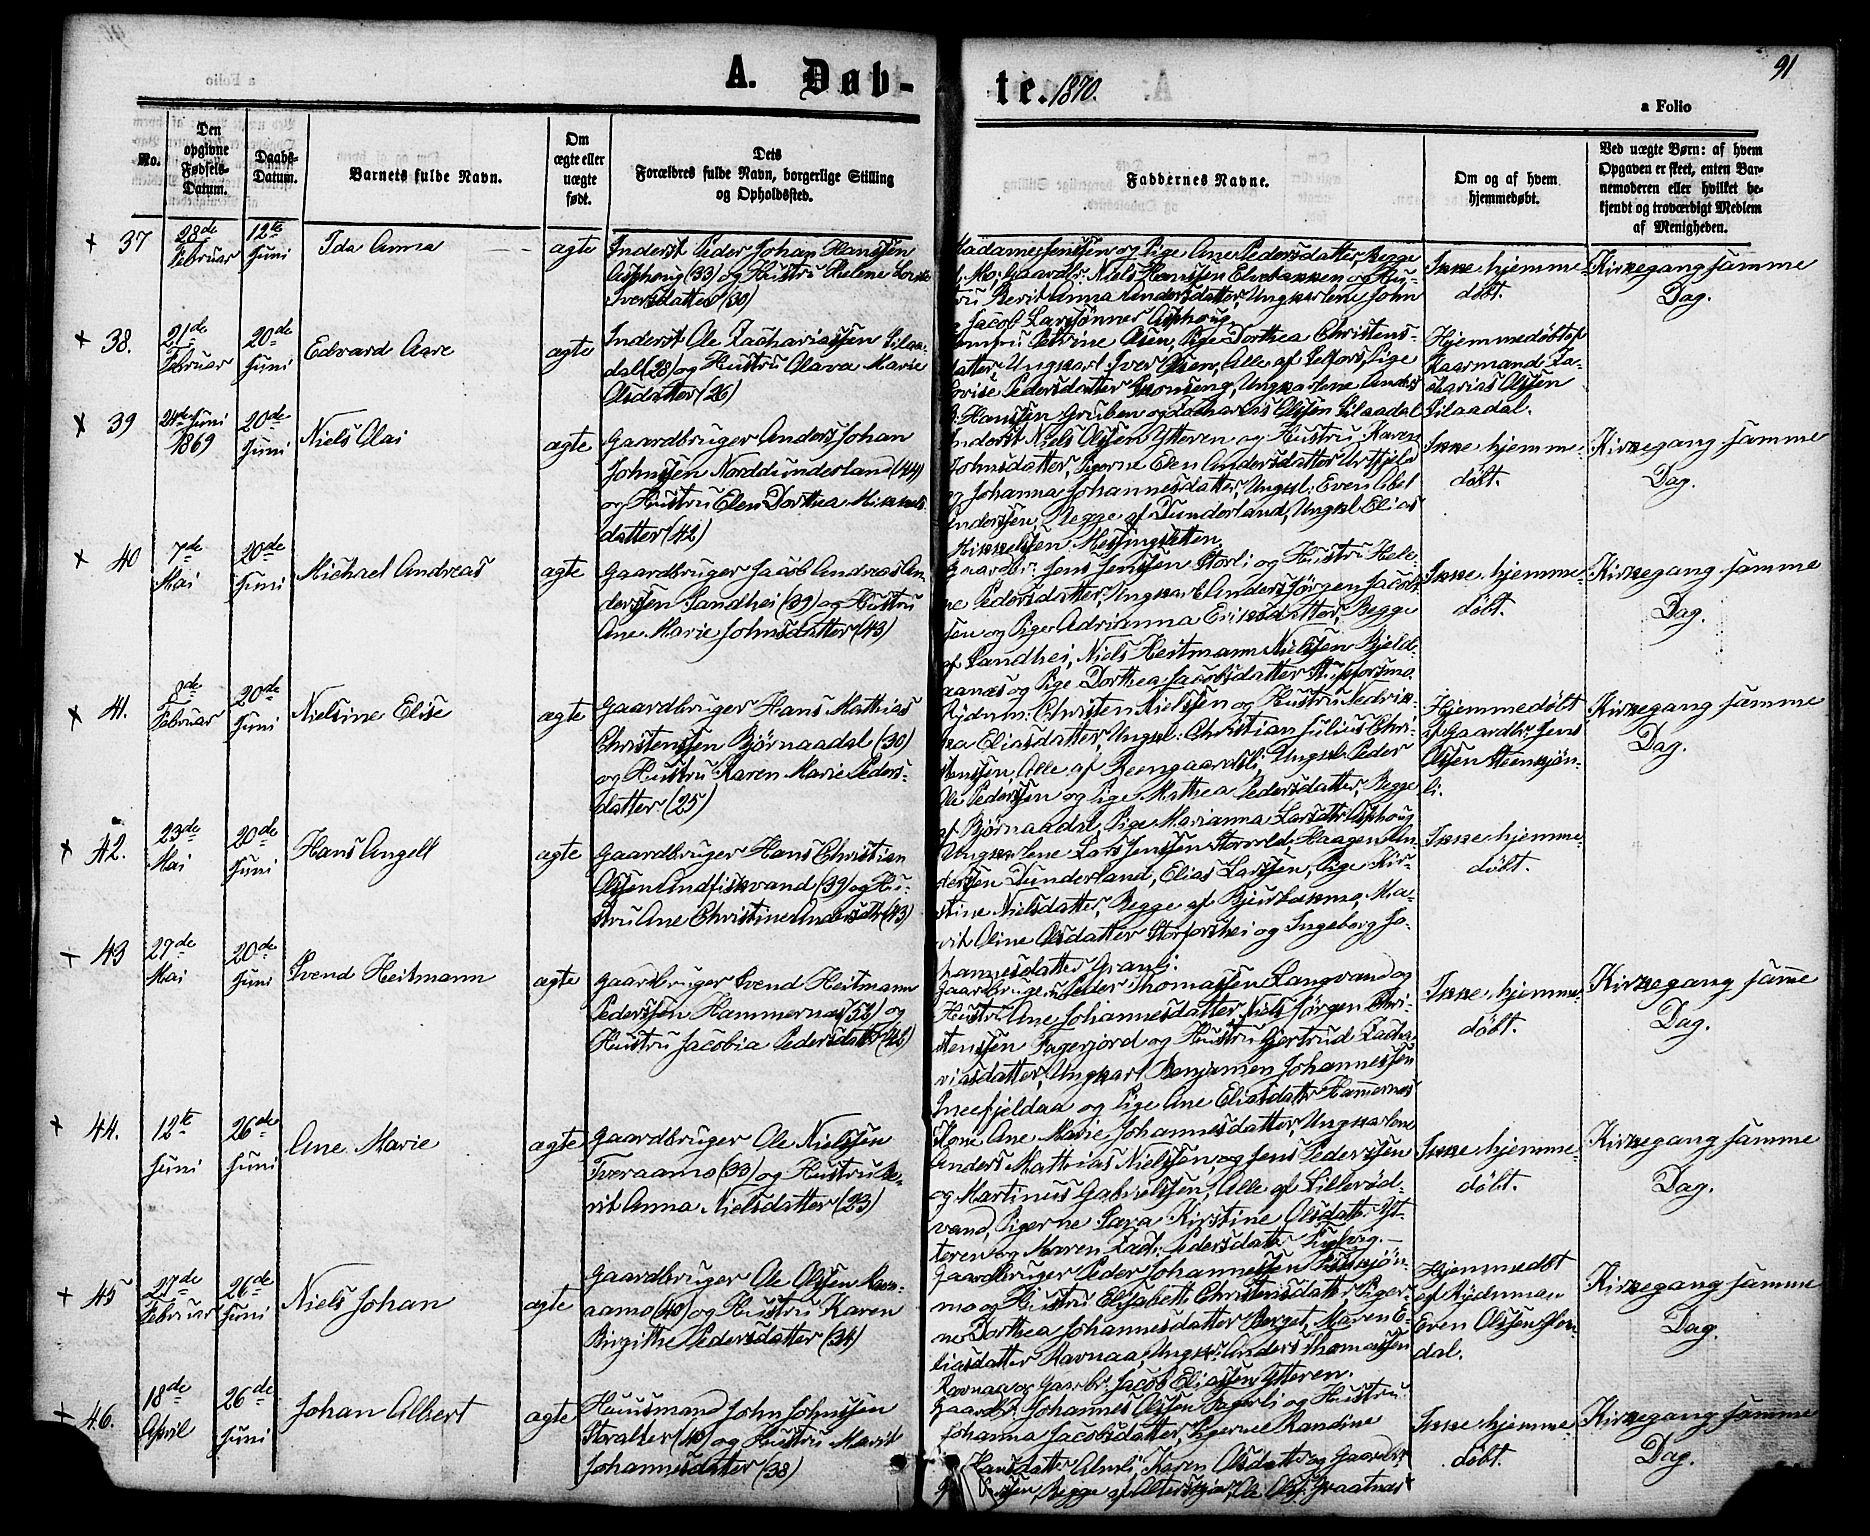 91
A. Døb-
te. 1870.
a Folio
No.
Den opgivne Fødsels-Datum.
Daabs-Datum.
Barnets fulde Navn.
Om ægte eller uægte født.
Dets Forældres fulde Navn, borgerlige Stilling og Opholdssted.
Faddernes Navne.
Om og af hvem hjemmedøbt.
Ved uægte Børn: af hvem Opgaven er skeet, enten Barnemoderen eller hvilket bekjendt og troværdigt Medlem af Menigheden.
+ 37
28de Februar
12te Juni
Ida Anna
ægte
Inderst Peder Johan Hanssen
Asphoug (33) og Hustru Helene
Iversdatter (30)
Madame Jenssen og Pige Ane Pedersdatter, Begge
Mo; Gaardbr: Niels Hanssen Elvebakken og Hu-
stru Berit Anna Andersdatter, Ungkarlene John
og Jacob Larssønner Asphoug.
Ikke hjemme-
døbt.
Kirkegang samme
Dag.
+ 38.
21de Februar
20de Juni
Edvard Aare
ægte
Inderst Ole Zachariassen Silaa-
dal (28) og Hustru Olava Marie
Olsdatter (26)
Jomfru Petrine Olsen, Pige Dorthea Christens-
datter, Ungkarl Iver Olsen, Alle af Selfors, Pige
Lovise Pedersdatter Skonseng, Ungkarlene Anders
Hanssen Gruben og Zacharias Olssen Silaadal
Hjemmedøbt af
Kaarmand Za-
charias Olssen
Silaadal.
+ 39
24de Juni 1869
20de Juni
Niels Olai
ægte
Gaardbruger Anders Johan
Johnssen Norddunderland (44)
og Hustru Elen Dorthea Mikkels-
datter (42)
Inderst Niels Olssen Ytteren og Hustru Karen
Johnsdatter, Pigerne Elen Andersdatter Urtfjeld
og Johanna Johannesdatter, Ungkl: Even Abel
Anderssen, Begge af Dunderland, Ungkl Elias
Mikkelssen Messingsletten.
Ikke hjemme-
døbt.
Kirkegang samme
Dag.
+ 40
7de Mai
20de Juni
Michael Andreas
ægte
Gaardbruger Jacob Andreas An-
derssen Sandhei (39) og Hustru
Ane Marie Johnsdatter (43)
Gaardbr: Jens Jenssen Storli og Hustru Hele-
ne Pedersdatter, Ungkarl Anders Jørgen Jacob-
sen og Pige Adrianna Eriksdatter, Begge
af Sandhei, Niels Heitmann Nielssen Bjeld-
aanæs og Pige Dorthea Jacobsdatter
Ikke hjemme-
døbt.
Kirkegang samme
Dag.
+ 41.
8de Februar
20de Juni
Nielsine Elise
ægte
Gaardbruger Hans Mathias
Christenssen Bjørnaadal (30)
og Hustru Karen Marie Peders-
datter (25)
Rydnm: Christen Nielssen og Hustru Fredrik-
ka Eliasdatter, Ungkl: Christian Julius Chri-
stenssen, Alle af Brengaardsli, Ungkl. Peder
Ole Pederssen og Pige Mathea Pedersdatter, Begge
af Bjørnaadal, Pige Marianna Larsdtr Asphoug
Hjemmedøbt
af Gaardbr Jens
Olssen Steensjøn-
li.
Kirkegang samme
Dag.
+ 42.
23de Mai
20de Juni
Hans Angell
ægte
Gaardbruger Hans Christian
Olssen Andfiskvand (39) og Hu-
stru Ane Christine Andersdtr (43)
Ungkarlene Lars Jenssen Storvold, Haagen An-
derssen Dunderland, Elias Larssen, Pige Kir-
stine Nielsdatter, Begge af Bjurbække, Ma-
rit Oline Olsdatter Storforshei og Ingeborg Jo-
hannesdatter Granli.
Ikke hjemme-
døbt.
+ 43
27de Mai
20de Juni
Svend Heitmann
ægte
Gaardbruger Svend Heitmann
Pederssen Hammernæs (32) og
Hustru Jacobia Pedersdatter (42)
Gaardbrugerne Peder Thomassen Langvand og
Hustru Ane Johannesdatter, Niels Jørgen Chri-
stenssen Fagerjord og Hustru Gjertrud Zacha-
riasdatter, Ungkarl Benjamin Johannessen
Sneefjeldaa og Pige Ane Eliasdatter Hamernæs
Ikke hjemme-
døbt.
Kirkegang samme
Dag.
+ 44.
12te Juni
26de Juni
Ane Marie
ægte
Gaardbruger Ole Nielssen
Tveraamo (33) og Hustru Be-
rit Anna Nielsdatter (23)
Kone Ane Marie Johannesdatter, Ungkarlene
Anders Mathias Nielssen, og Jens Pederssen
og Martinus Gabrielssen, Alle af Lillerød-
vand, Pigerne Sara Kirstine Olsdattr Yt-
teren og Maren Zach: Pedersdattr
Ikke hjemme-
døbt.
Kirkegang samme
Dag.
+ 45
27de Februar
26de Juni
Niels Johan
ægte
Gaardbruger Ole Olssen Ravn-
aamo (40) og Hustru Karen
Birgithe Pedersdatter (34)
Gaardbruger Peder Johannessen
mo og Hustru Elisabeth Christensdatter Piger-
ne Dorthea Johannesdatter Berget, Maren E-
liasdatter Ravnaa, Ungk: Anders Thomassen
Ravnaa og Gaardbr: Jacob Eliassen Ytteren.
Hjemmedøbt
af Rydnman
Even Olssen
dal.
Kirkegang samme
Dag.
+ 46.
18de April
26de Juni
Johan Albert
ægte
Huusmand John Johnssen
Storalter (40) og Hustru Marit
Johannesdatter (38)
Gaardbr Johannes Olssen Fagerli og Hustru
Johanna Jacobsdatter, Pigerne Randine
Hansdatter Almli, Karen Olsdatter og Gaardbr
Begge af Alterskjær, Ole Olss: Graatnæs
Ikke hjemme-
døbt.
Kirkegang samme
Dag.